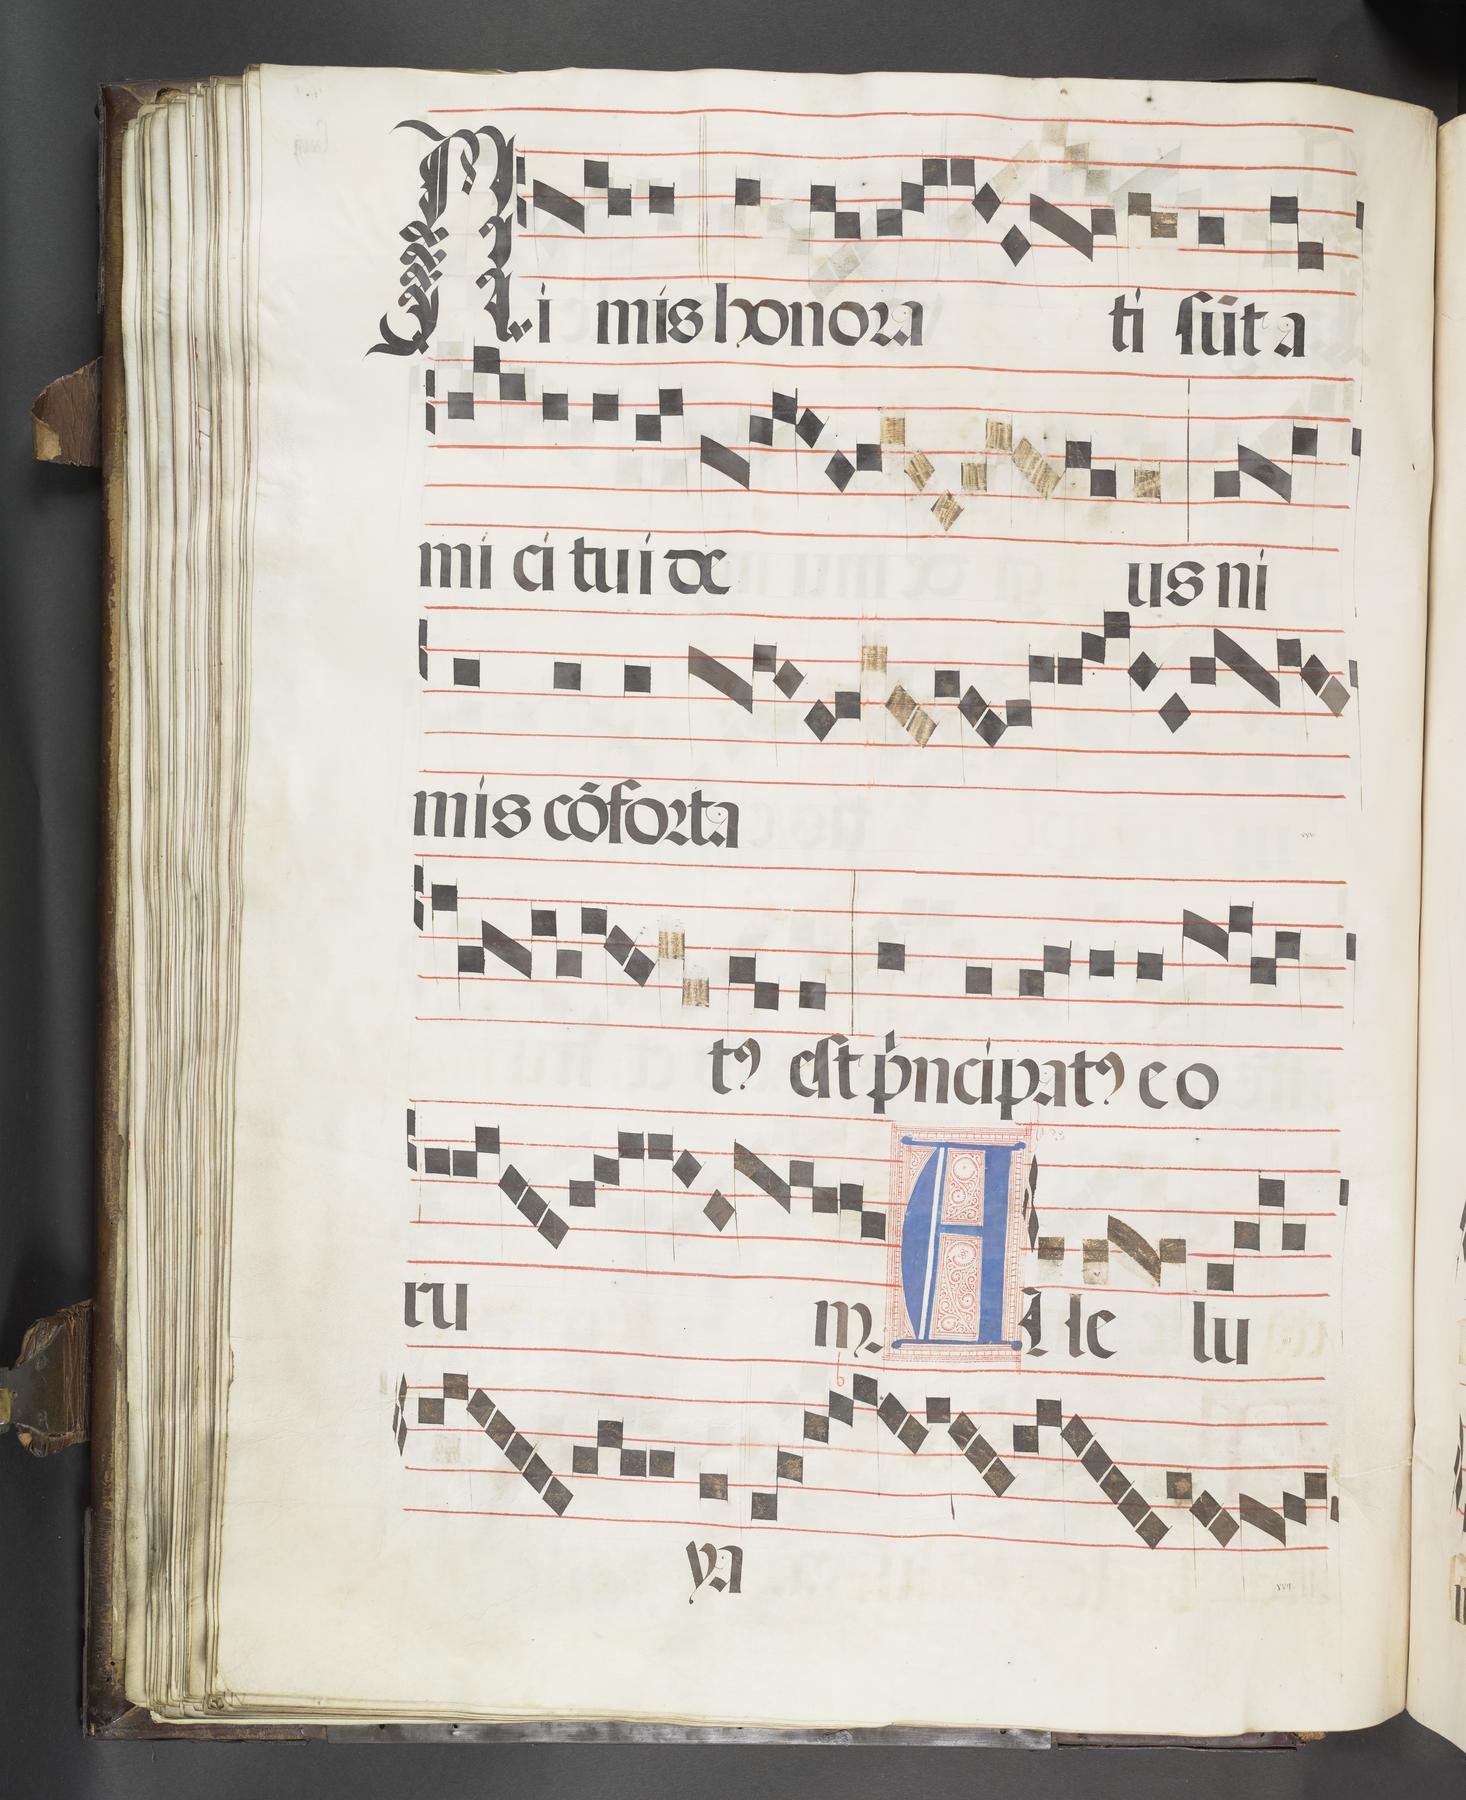 Ni mis honora ti sūt a
mi ci tu i de us ni
mis cōforta
tꝰ est p̄ncipatꝰ e o
ru m. A lle lu
ya